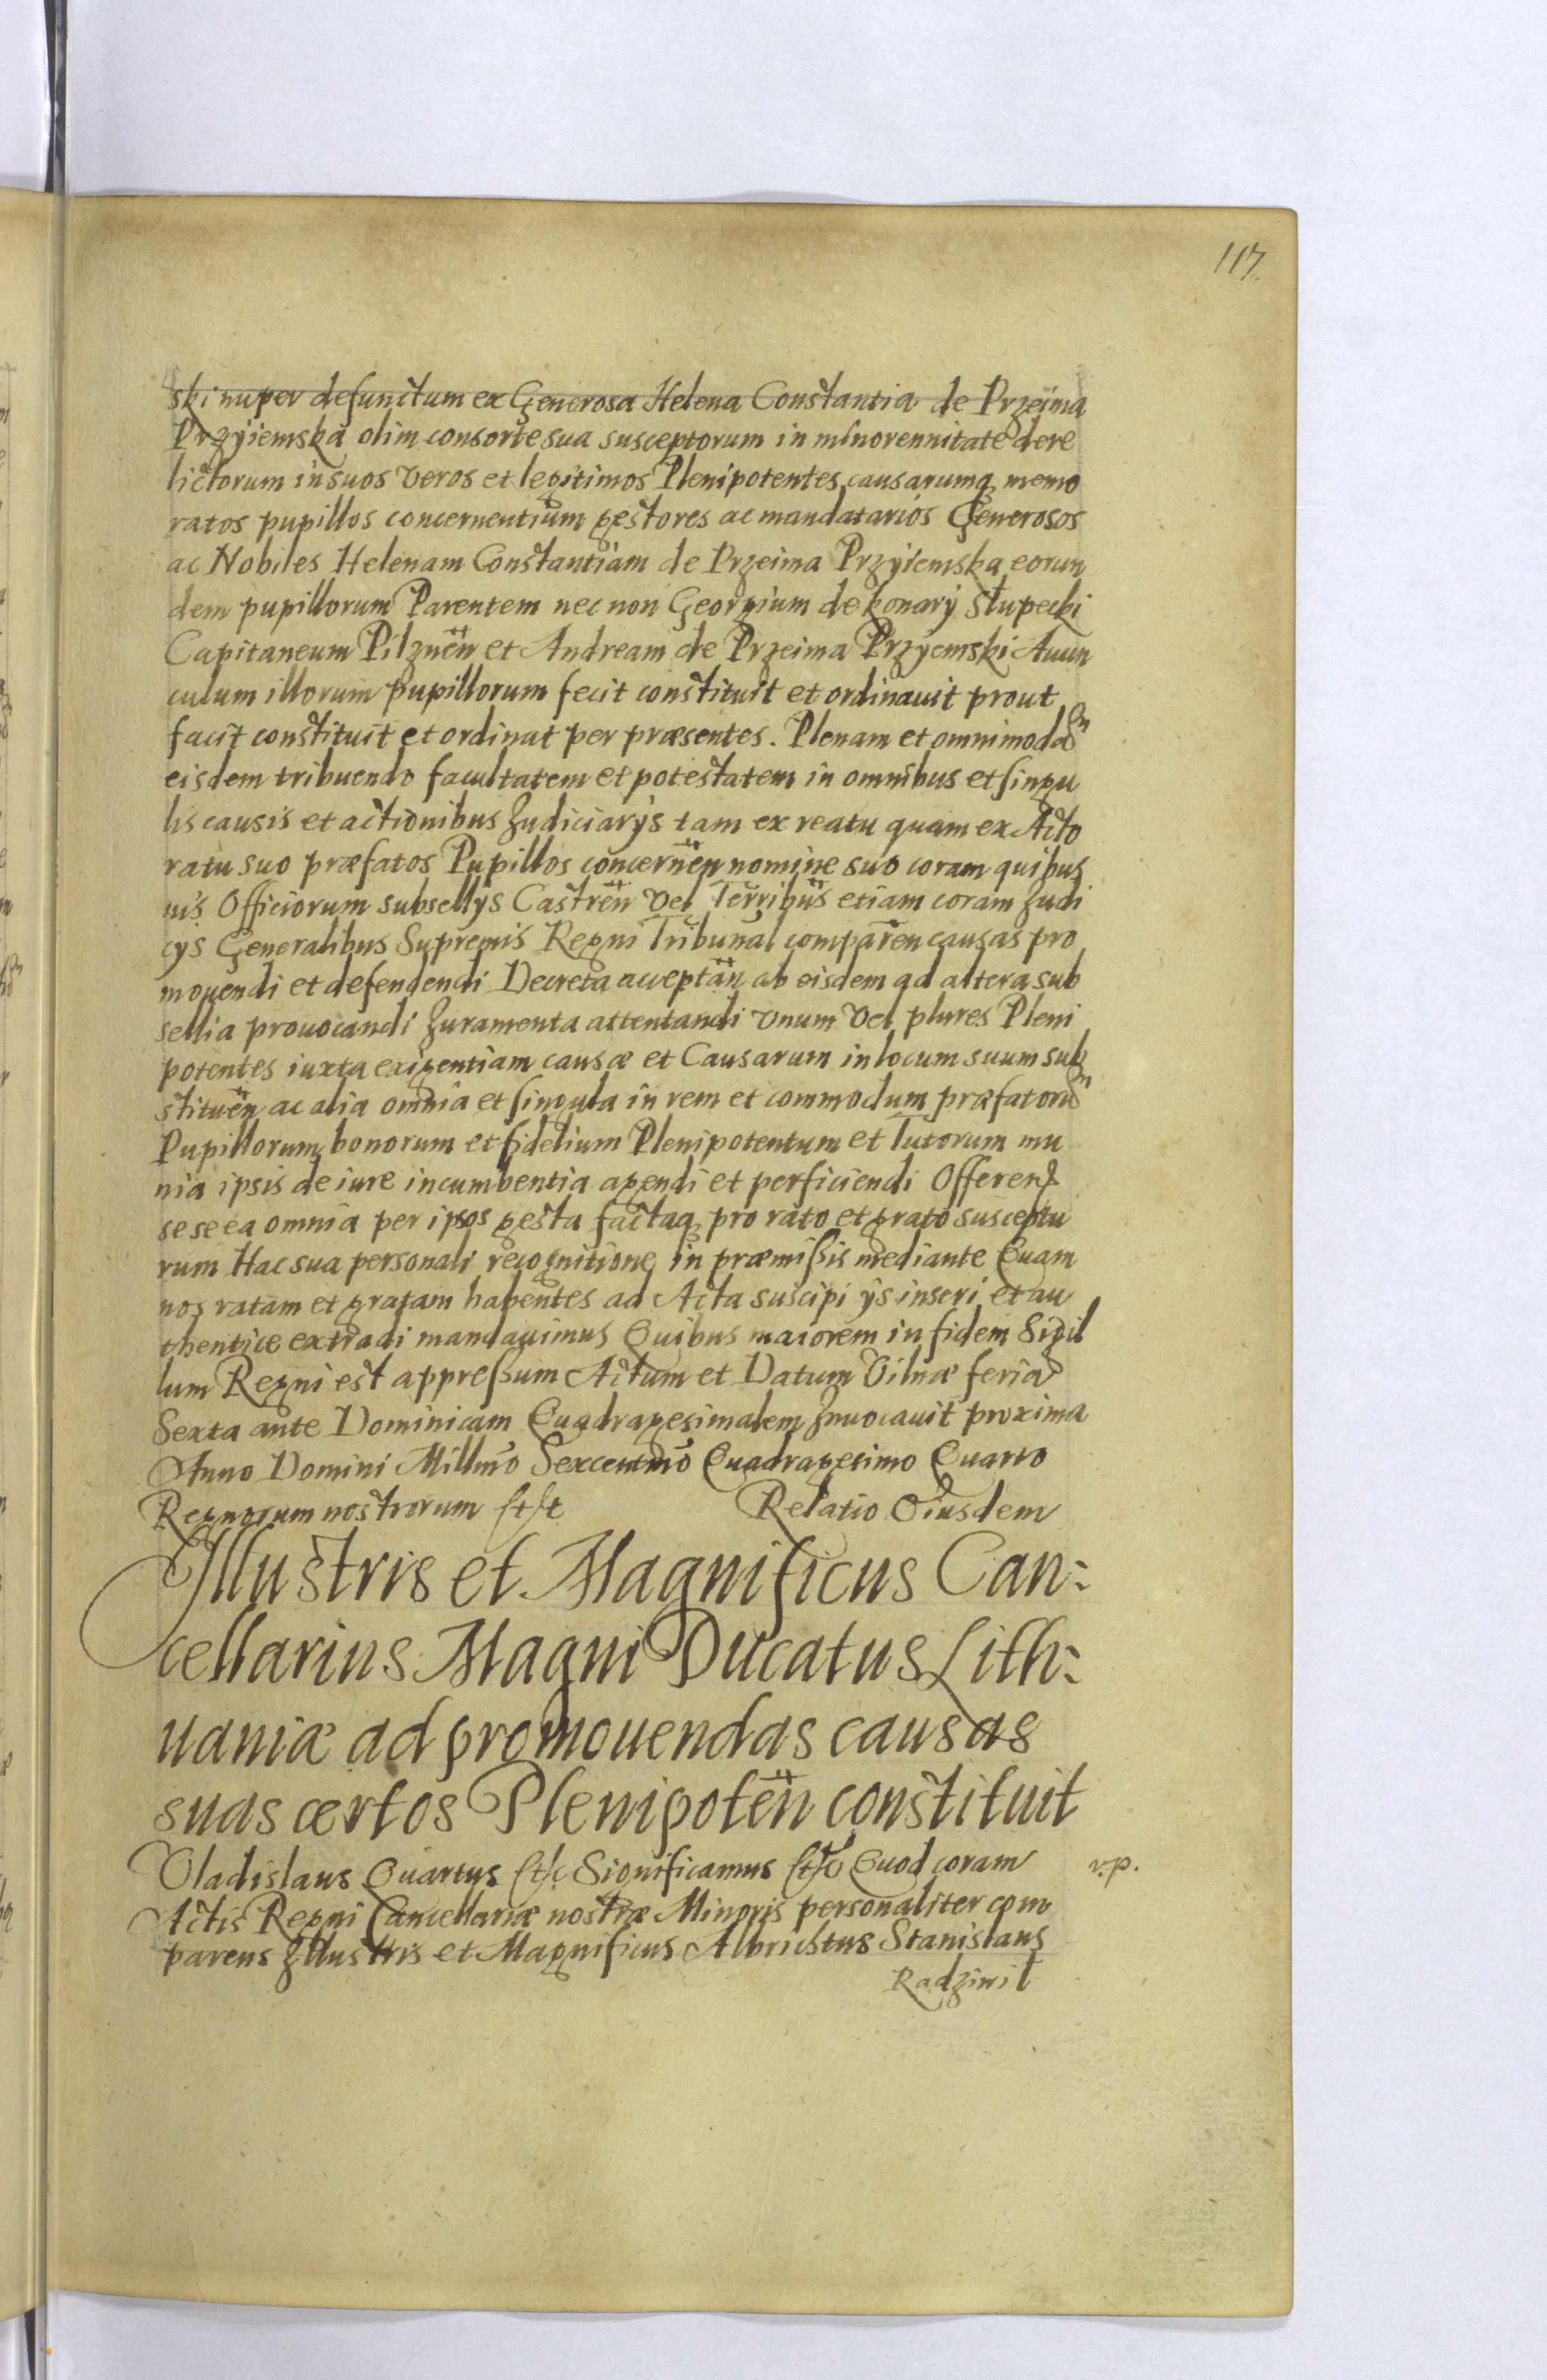 117.
ski nuper defunctum ex Generosa Helena Constantia de Przeima
Przyiemska olim consorte sua susceptorum in minorennitate dere
lictorum in suos veros et legitimos Plenipotentes causarumq memo
ratos pupillos concernentium gestores ac mandatarios Generosos
ac Nobiles Helenam Constantiam de Przeima Przyiemska eorun
dem pupillorum Parentem nec non Georgium de Konary Słupecki
Capitaneum Pilznen̈ et Andream de Przeima Przyemski Auun
culum illorum pupillorum fecit constituit et ordinauit prout
facit constituit et ordinat per præsentes. Plenam et omnimodam
eisdem tribuendo facultatem et potestatem in omnibus et singu
lis causis et actionibus Judiciarÿs tam ex reatu quam ex Acto
ratu suo præfatos Pupillos concernen̈ nomine suo coram quibus
uis Officiorum subsellÿs Castren̈ vel Terribus̈ etiam coram Judi
cÿs Generalibus Supremis Regni Tribunal comparen̈ causas pro
mouendi et defendendi Decreta acceptan̈ ab eisdem ad altera sub
sellia prouocandi Juramenta attentandi vnum vel plures Pleni
potentes iuxta exigentiam causæ et Causarum in locum suum sub
stituen̈ ac alia omnia et singula in rem et commodum præfatorum
Pupillorum bonorum et fidelium Plenipotentum et Tutorum mu
nia ipsis de iure incumbentia agendi et perficiendi Offerens
sese ea omnia per ipsos gesta factaq pro rato et grato susceptu
rum Hac sua personali recognitione in præmißis mediante Quam
nos ratam et gratam habentes ad Acta suscipi ÿs inseri et au
thentice extradi mandauimus Quibus maiorem in fidem Sigil
lum Regni est appreßum Actum et Datum Vilnæ feria
Sexta ante Dominicam Quadragesimalem Inuocauit proxima
Anno Domini Millmo Sexcentmo Quadragesimo Quarto
Regnorum nostrorum etc Relatio Eiusdem
Illustris et Magnificus Can:
cellarius Magni Ducatus Lith:
uaniæ ad promouendas causas
suas certos Plenipoten̈ constituit
Vladislaus Quartus etc Significamus etc Quod coram v.p.
Actis Regni Cancellariæ nostræ Minoris personaliter com
parens Illustris et Magnificus Albrichtus Stanislaus
Radziwil